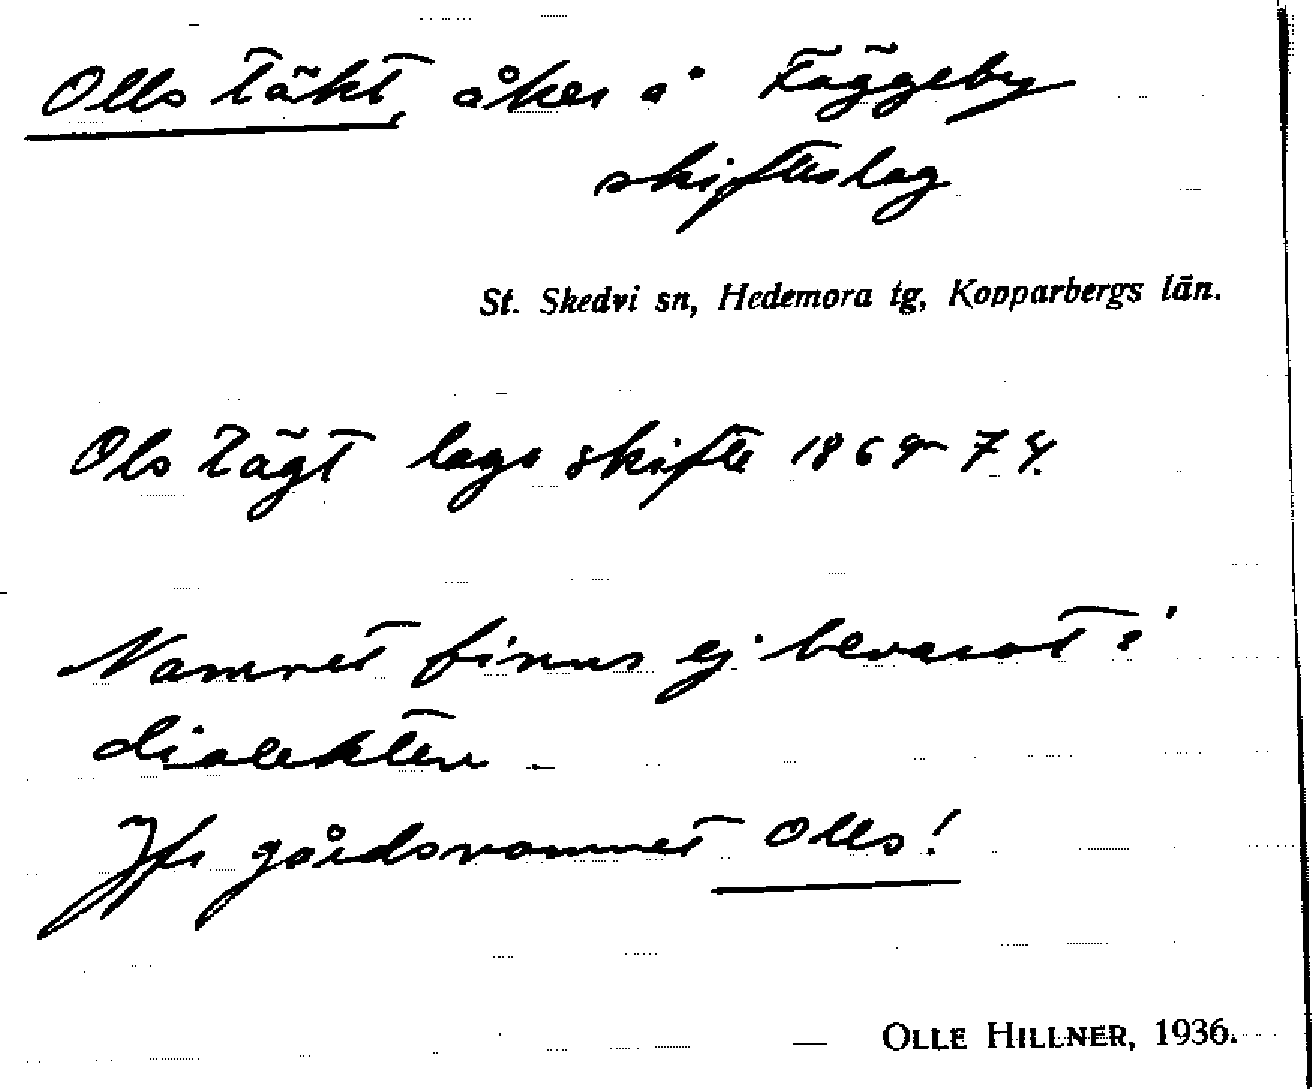 Olls täkt, åker i Fäggeby
skifteslag
St. Skedvi sn, Hedemora tg, Kopparbergs län.
Ols tägt laga skifte 1869-74.
Namnet finns ej bevarat i
dialekten.
Jfr gårdsnamnet Olls!
OLLE HILLNER, 1936.